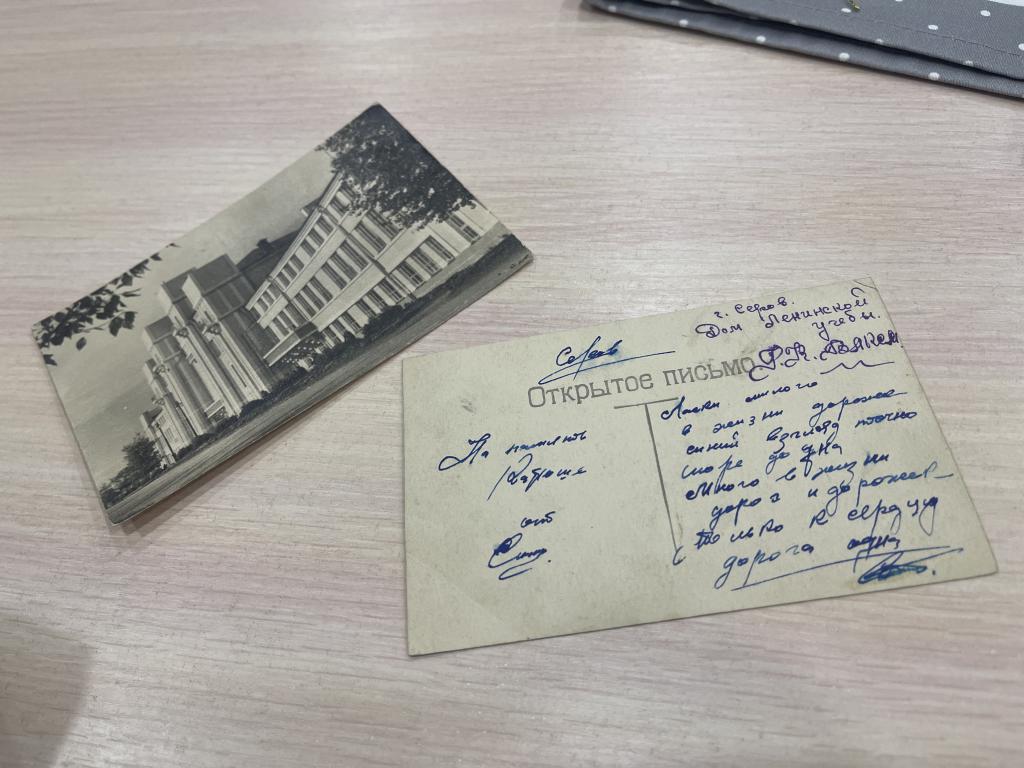 г. Серов.
Дом Ленинской
учебы.
Серов
Открытое письмо
На память
Катюше
от
Ласки милого
в жизни дороже
синий взгляд точно
море до дна
Много в жизни
дорог и дорожек
только к сердцу
дорога одна